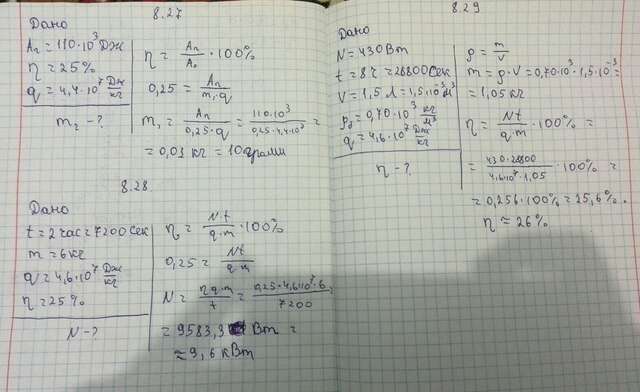 8.27
Дано
Aп = 110·10³ Дж
η = 25%
q = 4,4·10⁷ Дж/кг
m₂ - ?
η = Aп/Aз · 100%
0,25 = Aп/m₁q
m₁ = Aп/0,25·q = 110·10³/0,25·4,4·10⁷ =
= 0,01 кг = 10 грамм
8.28
Дано
t = 2 час = 7200 сек
m = 6 кг
q = 4,6·10⁷ Дж/кг
η = 25%
N - ?
η = N·t/q·m · 100%
0,25 = Nt/q·m
N = ηq·m/t = 0,25·4,6·10⁷·6/7200 =
= 9583,3 Вт =
≈ 9,6 кВт
8.29
Дано
N = 430 Вт
t = 8 г = 28800 сек
V = 1,5 л = 1,5·10⁻³ м³
0,70·10³ кг/м³
q = 4,6·10⁷ Дж/кг
η - ?
ρ = m/V
m = ρ·V = 0,70·10³·1,5·10⁻³ =
= 1,05 кг
η = Nt/q·m · 100% =
= 430·28800/4,6·10⁷·1,05 · 100% =
= 0,256·100% = 25,6%.
η ≈ 26%